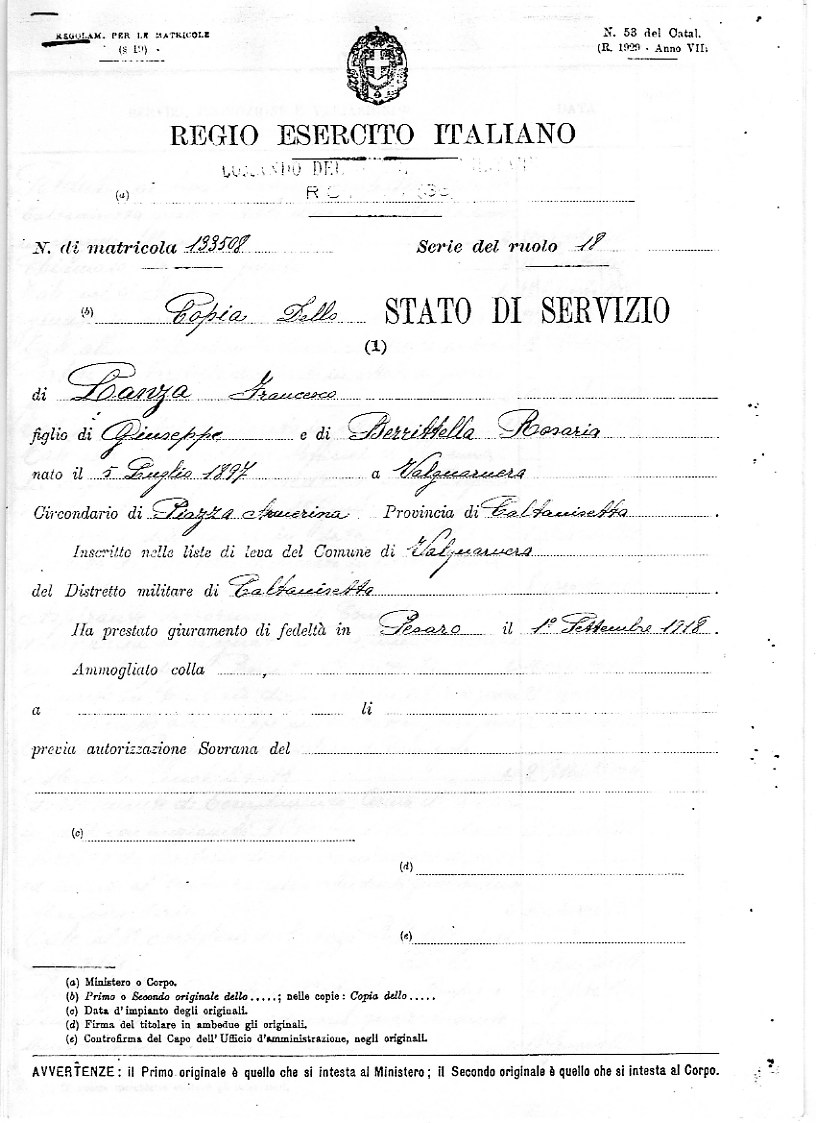 REGOLAM. PER LE MATRICOLE
(§ 19)
N. 53 del Catal.
(R. 1929 - Anno VII)
REGIO ESERCITO ITALIANO
COMANDO DEL
(a)
N. di matricola 133508 Serie del ruolo 18
(b) Copia dello STATO DI SERVIZIO
(1)
di Lanza Francesco
figlio di Giuseppe e di Berrittella Rosaria
nato il 5 Luglio 1897 a Valguarnera
Circondario di Piazza Armerina Provincia di Caltanisetta.
Inscritto nelle liste di leva del Comune di Valguarnera
del Distretto militare di Caltanisetta.
Ha prestato giuramento di fedeltà in Pesaro il 1° Settembre 1918.
Ammogliato colla
a li
previa autorizzazione Sovrana del
(c)
(d)
(e)
(a) Ministero o Corpo.
(b) Primo o Secondo originale dello .....; nelle copie: Copia dello .....
(c) Data d'impianto degli originali.
(d) Firma del titolare in ambedue gli originali.
(e) Controfirma del Capo dell'Ufficio d'amministrazione, negli originali.
AVVERTENZE: il Primo originale è quello che si intesta al Ministero; il Secondo originale è quello che si intesta al Corpo.